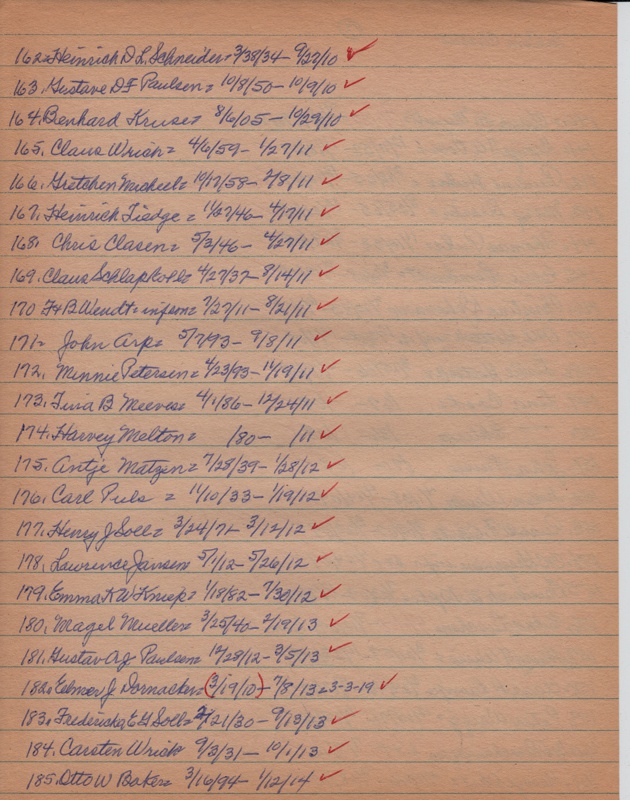 162= Heinrich D L. Schneider= 3/38/34 - 9/27/10 ✓
163. Gustave D F Paulsen= 10/8/50 - 10/9/10 ✓
164. Benhard Kruse= 8/6/05 - 10/29/10 ✓
165. Claus Wriah= 4/6/59 - 1/27/11 ✓
166. Gretchen Micheel= 10/17/58 - 2/8/11 ✓
167. Heinrich Tiedge = 11/27/46 - 4/17/11 ✓
168. Chris Clasen= 5/3/46 - 4/27/11 ✓
169. Claus Schlapkohl= 4/27/37 - 8/14/11 ✓
170 F&B Wendt= infson= 7/27/11 - 8/21/11 ✓
171= John Arp= 5/7/93 - 9/8/11 ✓
172. Minnie Petersen= 4/23/93 - 11/19/11 ✓
173. Tina B Meeves= 4/1/86 - 12/24/11 ✓
174. Harvey Melton= /80 - /11 ✓
175. Antje Matzen= 7/28/39 - 1/28/12 ✓
176. Carl Puls = 11/10/33 - 1/19/12 ✓
177. Henry J Soll= 3/24/71 - 3/12/12 ✓
178. Lawrence Jansen= 5/1/12 - 5/26/12 ✓
179. Emma K W Kniep= 1/18/82 - 7/30/12 ✓
180. Magel Mueller= 3/25/40 - 2/19/13 ✓
181. Gustav Ag Paulsen= 12/28/12 - 3/5/13 ✓
182. Elmer J Dornacker= (3/19/10) - 7/8/13 = 3-3-19 ✓
183. Fredericka E G Soll= 2/21/30 - 9/13/13 ✓
184. Carsten Wriah 9/3/31 - 10/1/13 ✓
185. Otto W Baker= 3/16/94 - 1/12/14 ✓